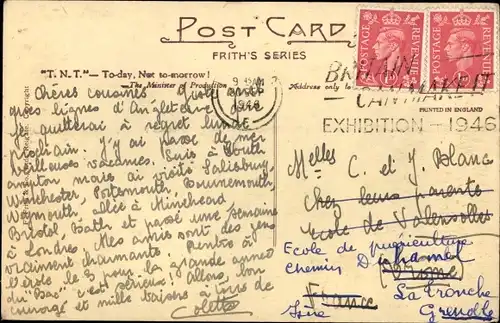 POST CARD
FRITH'S SERIES
"T.N.T."—To-day, Not to-morrow!
The Minister of Production
Address only to
PRINTED IN ENGLAND
POSTAGE REVENUE
POSTAGE REVENUE
1946
BRITAIN
CAN MAKE IT
EXHIBITION - 1946
Chères cousines
lignes d'Angleterre
je quitterai à regret lundi
prochain. J'y ai passé de mer
veilleuses vacances. Suis à South
ampton mais ai visité Salisbury,
Winchester, Portsmouth, Bournemouth,
Weymouth, allée à Minehead
Bristol, Bath et passé une semaine
à Londres. Mes amis sont des gens
vraiment charmants. Rentre à
l'école le 3 pour la grande année
du "Bac" c'est sérieux! Allons, bon
courage et mille baisers à tous de
Colette
Melles C. et J. Blanc
chez leurs parents
école de Valensolles
Ecole de puériculture
Chemin Duhamel
(Drôme)
La Tronche
France
Grenoble
Isère